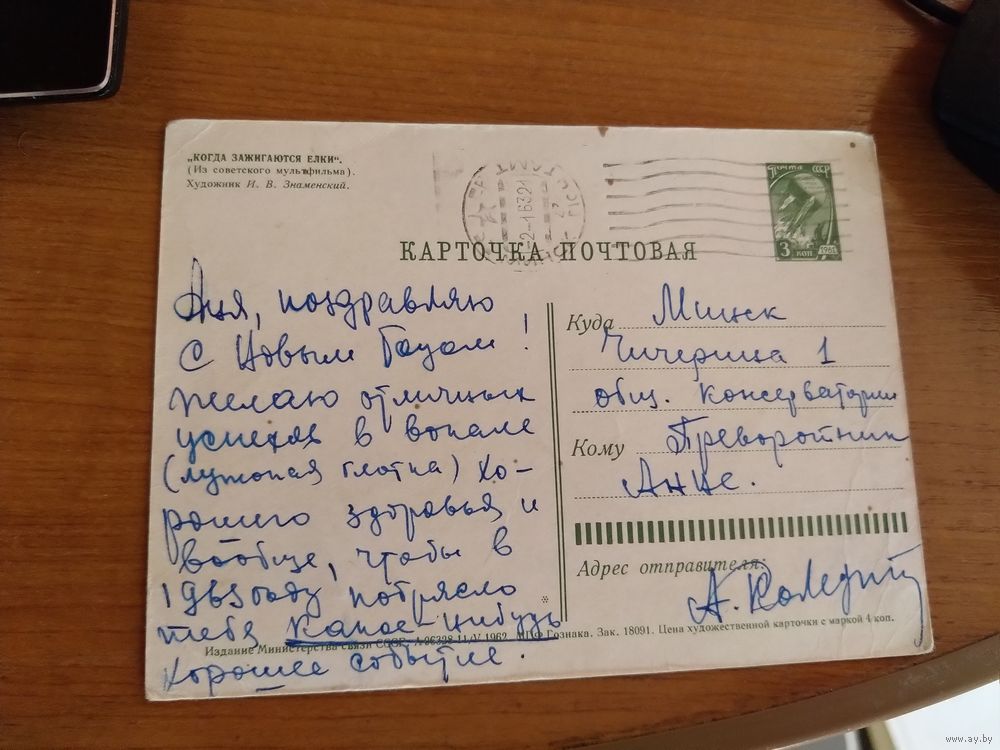 „КОГДА ЗАЖИГАЮТСЯ ЕЛКИ".
(Из советского мультфильма).
Художник И. В. Знаменский.
Почта СССР
3 коп 1961
КАРТОЧКА ПОЧТОВАЯ
Аня, поздравляю
с Новым Годом!
желаю отличных
успехов в вокале
(луженая глотка) хо-
рошего здоровья и
вообще, чтобы в
1963 году потрясло
тебя какое-нибудь
хорошее событие.
Куда Минск
Чичерина 1
общ. консерватории
Кому Преворотник
Анне.
Адрес отправителя:
Издание Министерства связи СССР. 11/V 1962. МПФ Гознака. Зак. 18091. Цена художественной карточки с маркой 4 коп.
www.ay.by